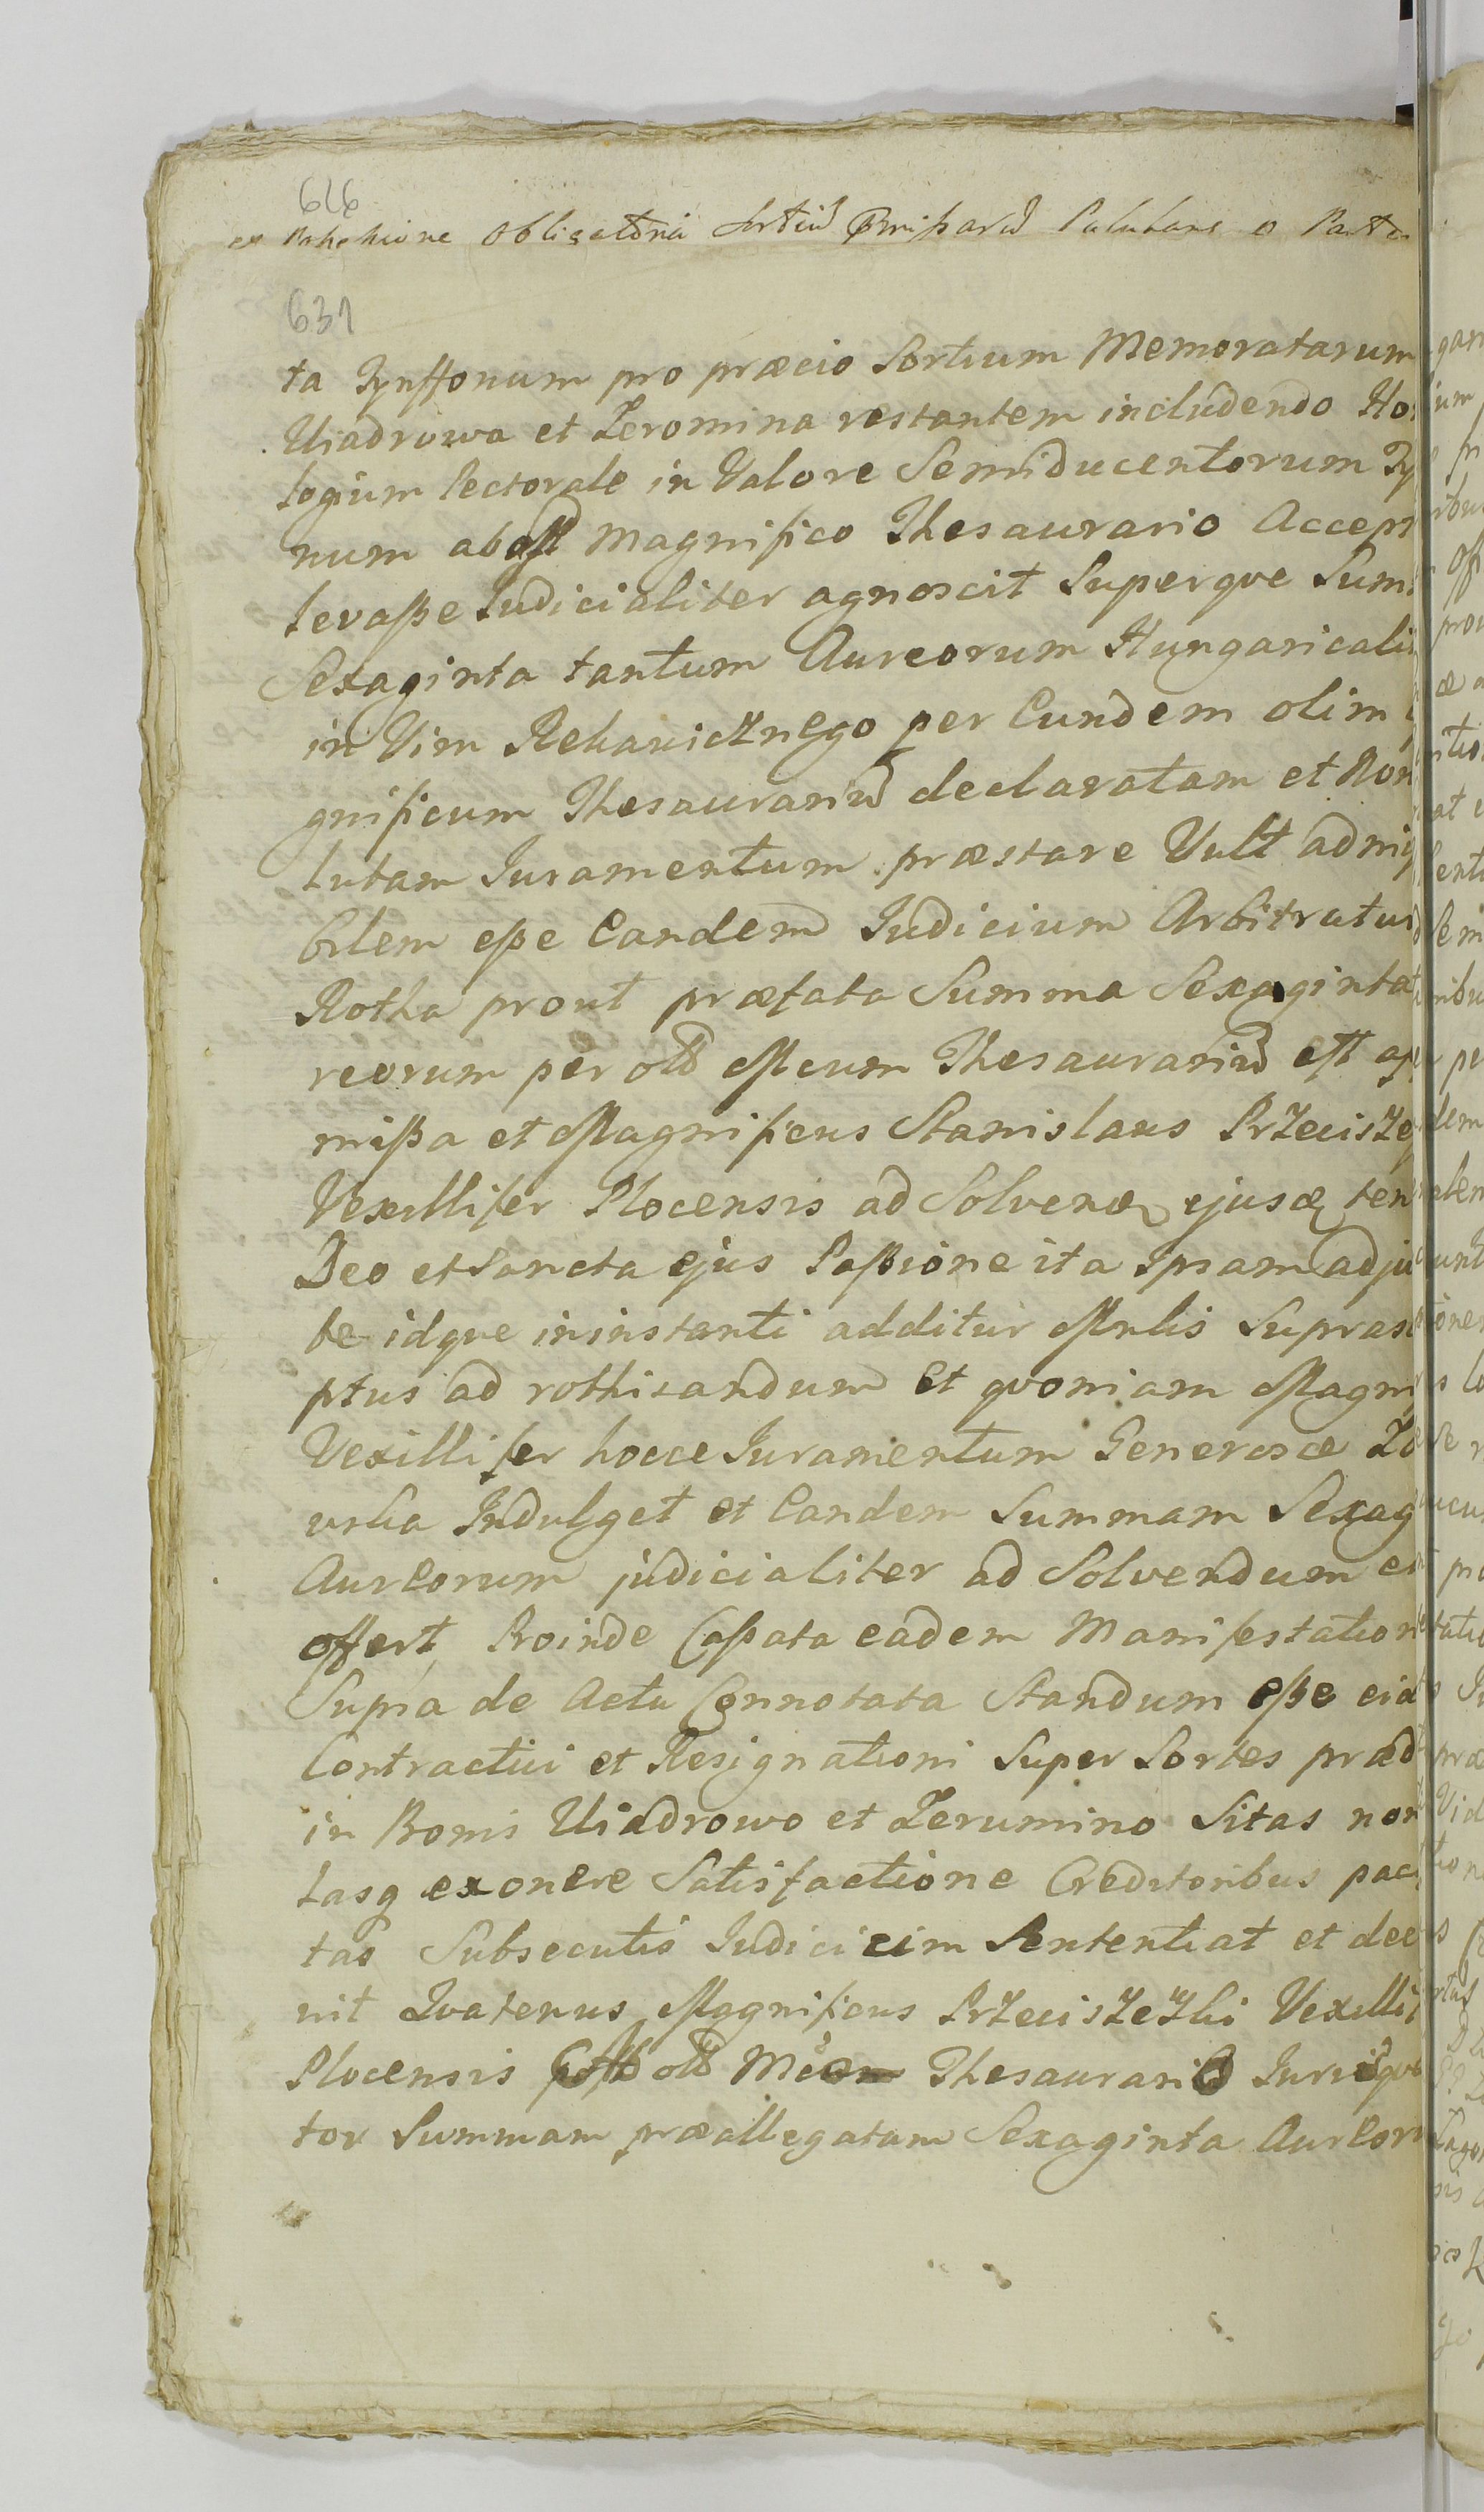 626
ex obligatoria
631
ta Tynffonum pro præcio Sortium Memoratarum
Uiadrowa et Zeromina restantem includendo Ho
logium Pectorale in Valore Semiducentorum Ty
num ab Magnifico Thesaurario Accepi
levasse Iudicialiter agnoscit Superqve Sum
Sexaginta tantum Aureorum Hungaricali
in Vim Rekawicznego per Eundem olim
gnificum Thesaurariũ declaratam et Non
lutam Iuramentum præstare Vult admi
bilem esse Eandem Iudicium Arbitratur
Rotha prout præfata Summa Sexaginta
reorum per olĩ Mcum Thesaurariũ est
missa et Magnificus Stanislaus Przecisze
Vexillifer Plocensis ad Solvend ejusd ten
Deo et Sancta ejus Passione ita Ipsam adju
te idqve in instanti additur Mnlis Suprasc
ptus ad rothisandum et qvoniam Magn
Vexillifer hocce Iuramentum Generosæ Zo
wska Indulget et Eandem Summam Sexag
Aureorum judicialiter ad Solvendum ei
offert, Proinde Cassata eadem Manifestation
Supra de Actu Connotata Standum esse eid
Contractui et Resignationi Super Sortes præd
in Bonis Uiadrowo et Zerumino Sitas non
tasq exonere Satisfactione Creditoribus pac
tas Subsecutis Iudicium Sententiat et dec
nit Qvatenus Magnificus Przeciszewski Vexilli
Plocensis olĩ Thesaurari Iuris
tor Summam præallegatam Sexaginta Aureor